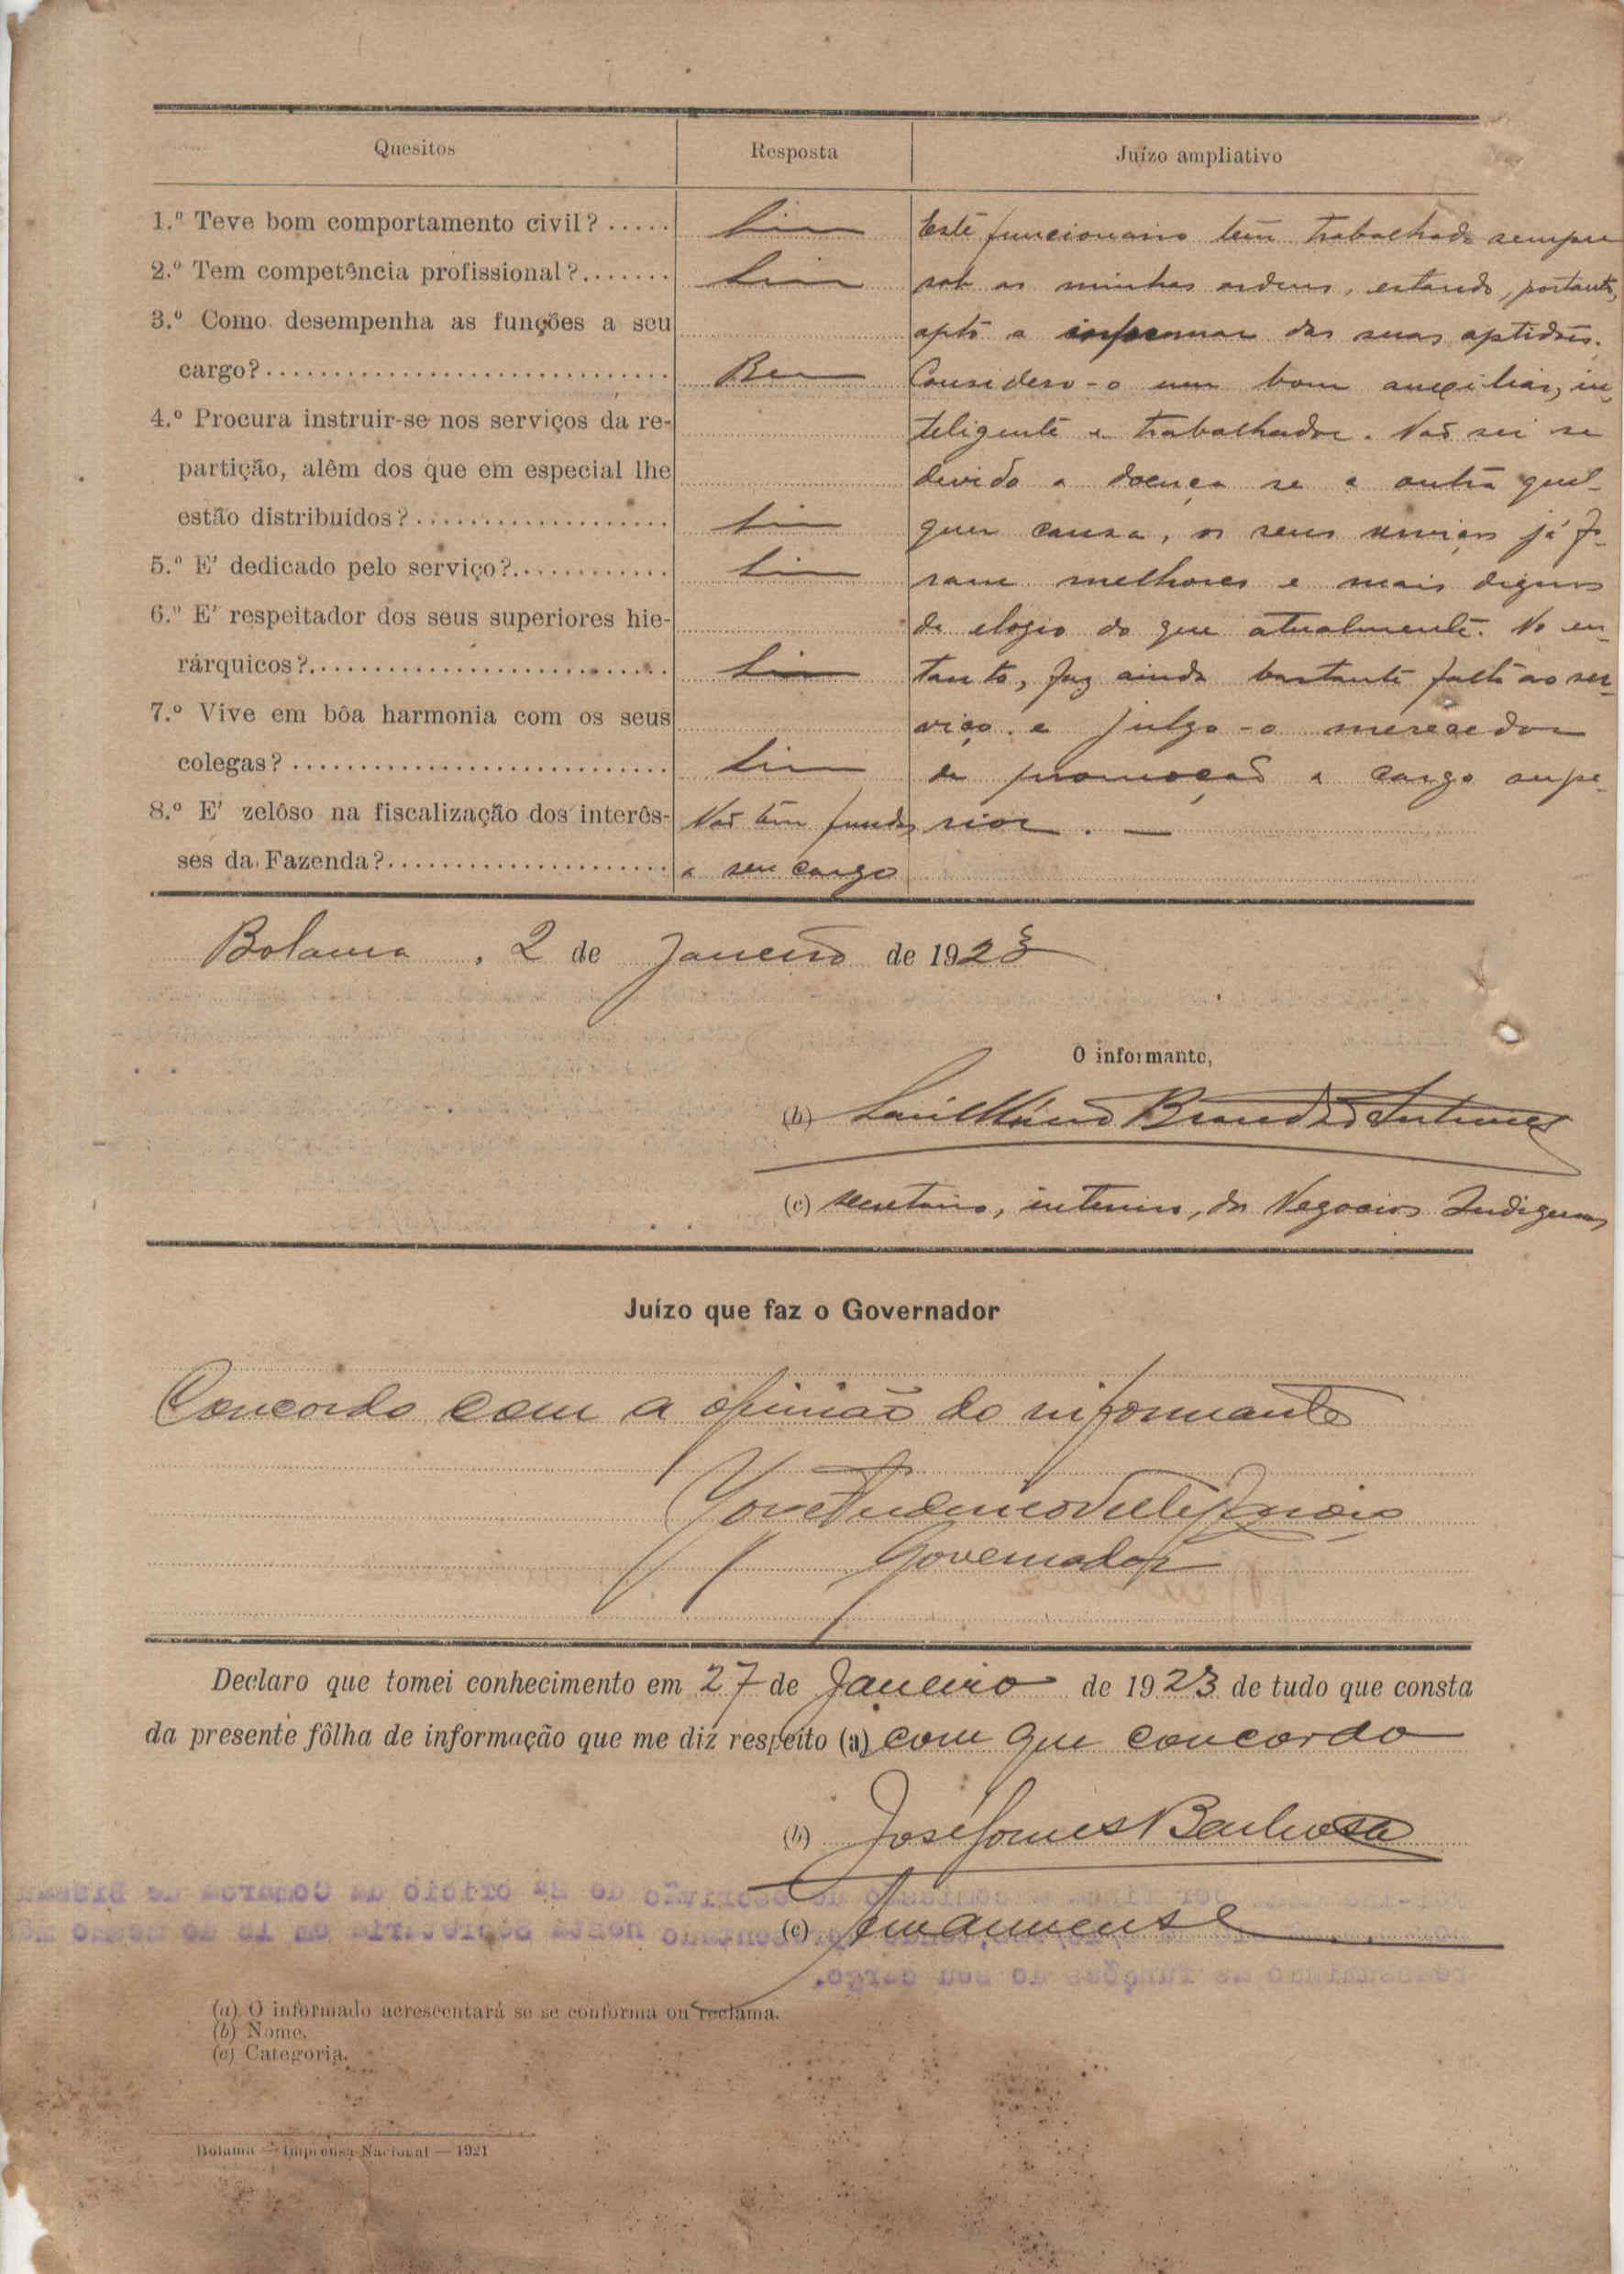 Quesitos Resposta Juízo ampliativo
1.º Teve bom comportamento civil? ..... Sim Este funcionario tem trabalhado sempre
2.º Tem competência profissional?....... Sim sob as minhas ordens, estando, portanto,
3.º Como desempenha as funções a seu apto a informar das suas aptidões.
cargo?.............................. Bem Considero-o um bom auxiliar, in-
4.º Procura instruir-se nos serviços da re- teligente e trabalhador. Não sei se
partição, alêm dos que em especial lhe devido a doença se a outra qual-
estão distribuídos?................... Sim quer causa, os seus serviços já fo-
5.º E' dedicado pelo serviço?............ Sim ram melhores e mais dignos
6.º E' respeitador dos seus superiores hie- de elogio do que atualmente. No en-
rárquicos?.......................... Sim tanto, faz ainda bastante falta ao ser-
7.º Vive em bôa harmonia com os seus viço e julgo-o merecedor
colegas?............................ Sim de promoção a cargo supe-
8.º E' zelôso na fiscalização dos interês- Não tem fundos rior. —
ses da Fazenda?...................... a seu cargo
Bolama, 2 de Janeiro de 1923
O informante,
(b) Brandão Antunes
(c) secretario, interino, dos Negocios Indigenas
Juízo que faz o Governador
Concordo com a opinião do informante
Governador
Declaro que tomei conhecimento em 27 de Janeiro de 1923 de tudo que consta
da presente fôlha de informação que me diz respeito (a) com que concordo
(b) José Gomes Barbosa
(c) Amanuense
(a) O informado acrescentará se se conforma ou reclama.
(b) Nome.
(c) Categoria.
Bolama — Imprensa Nacional — 1921